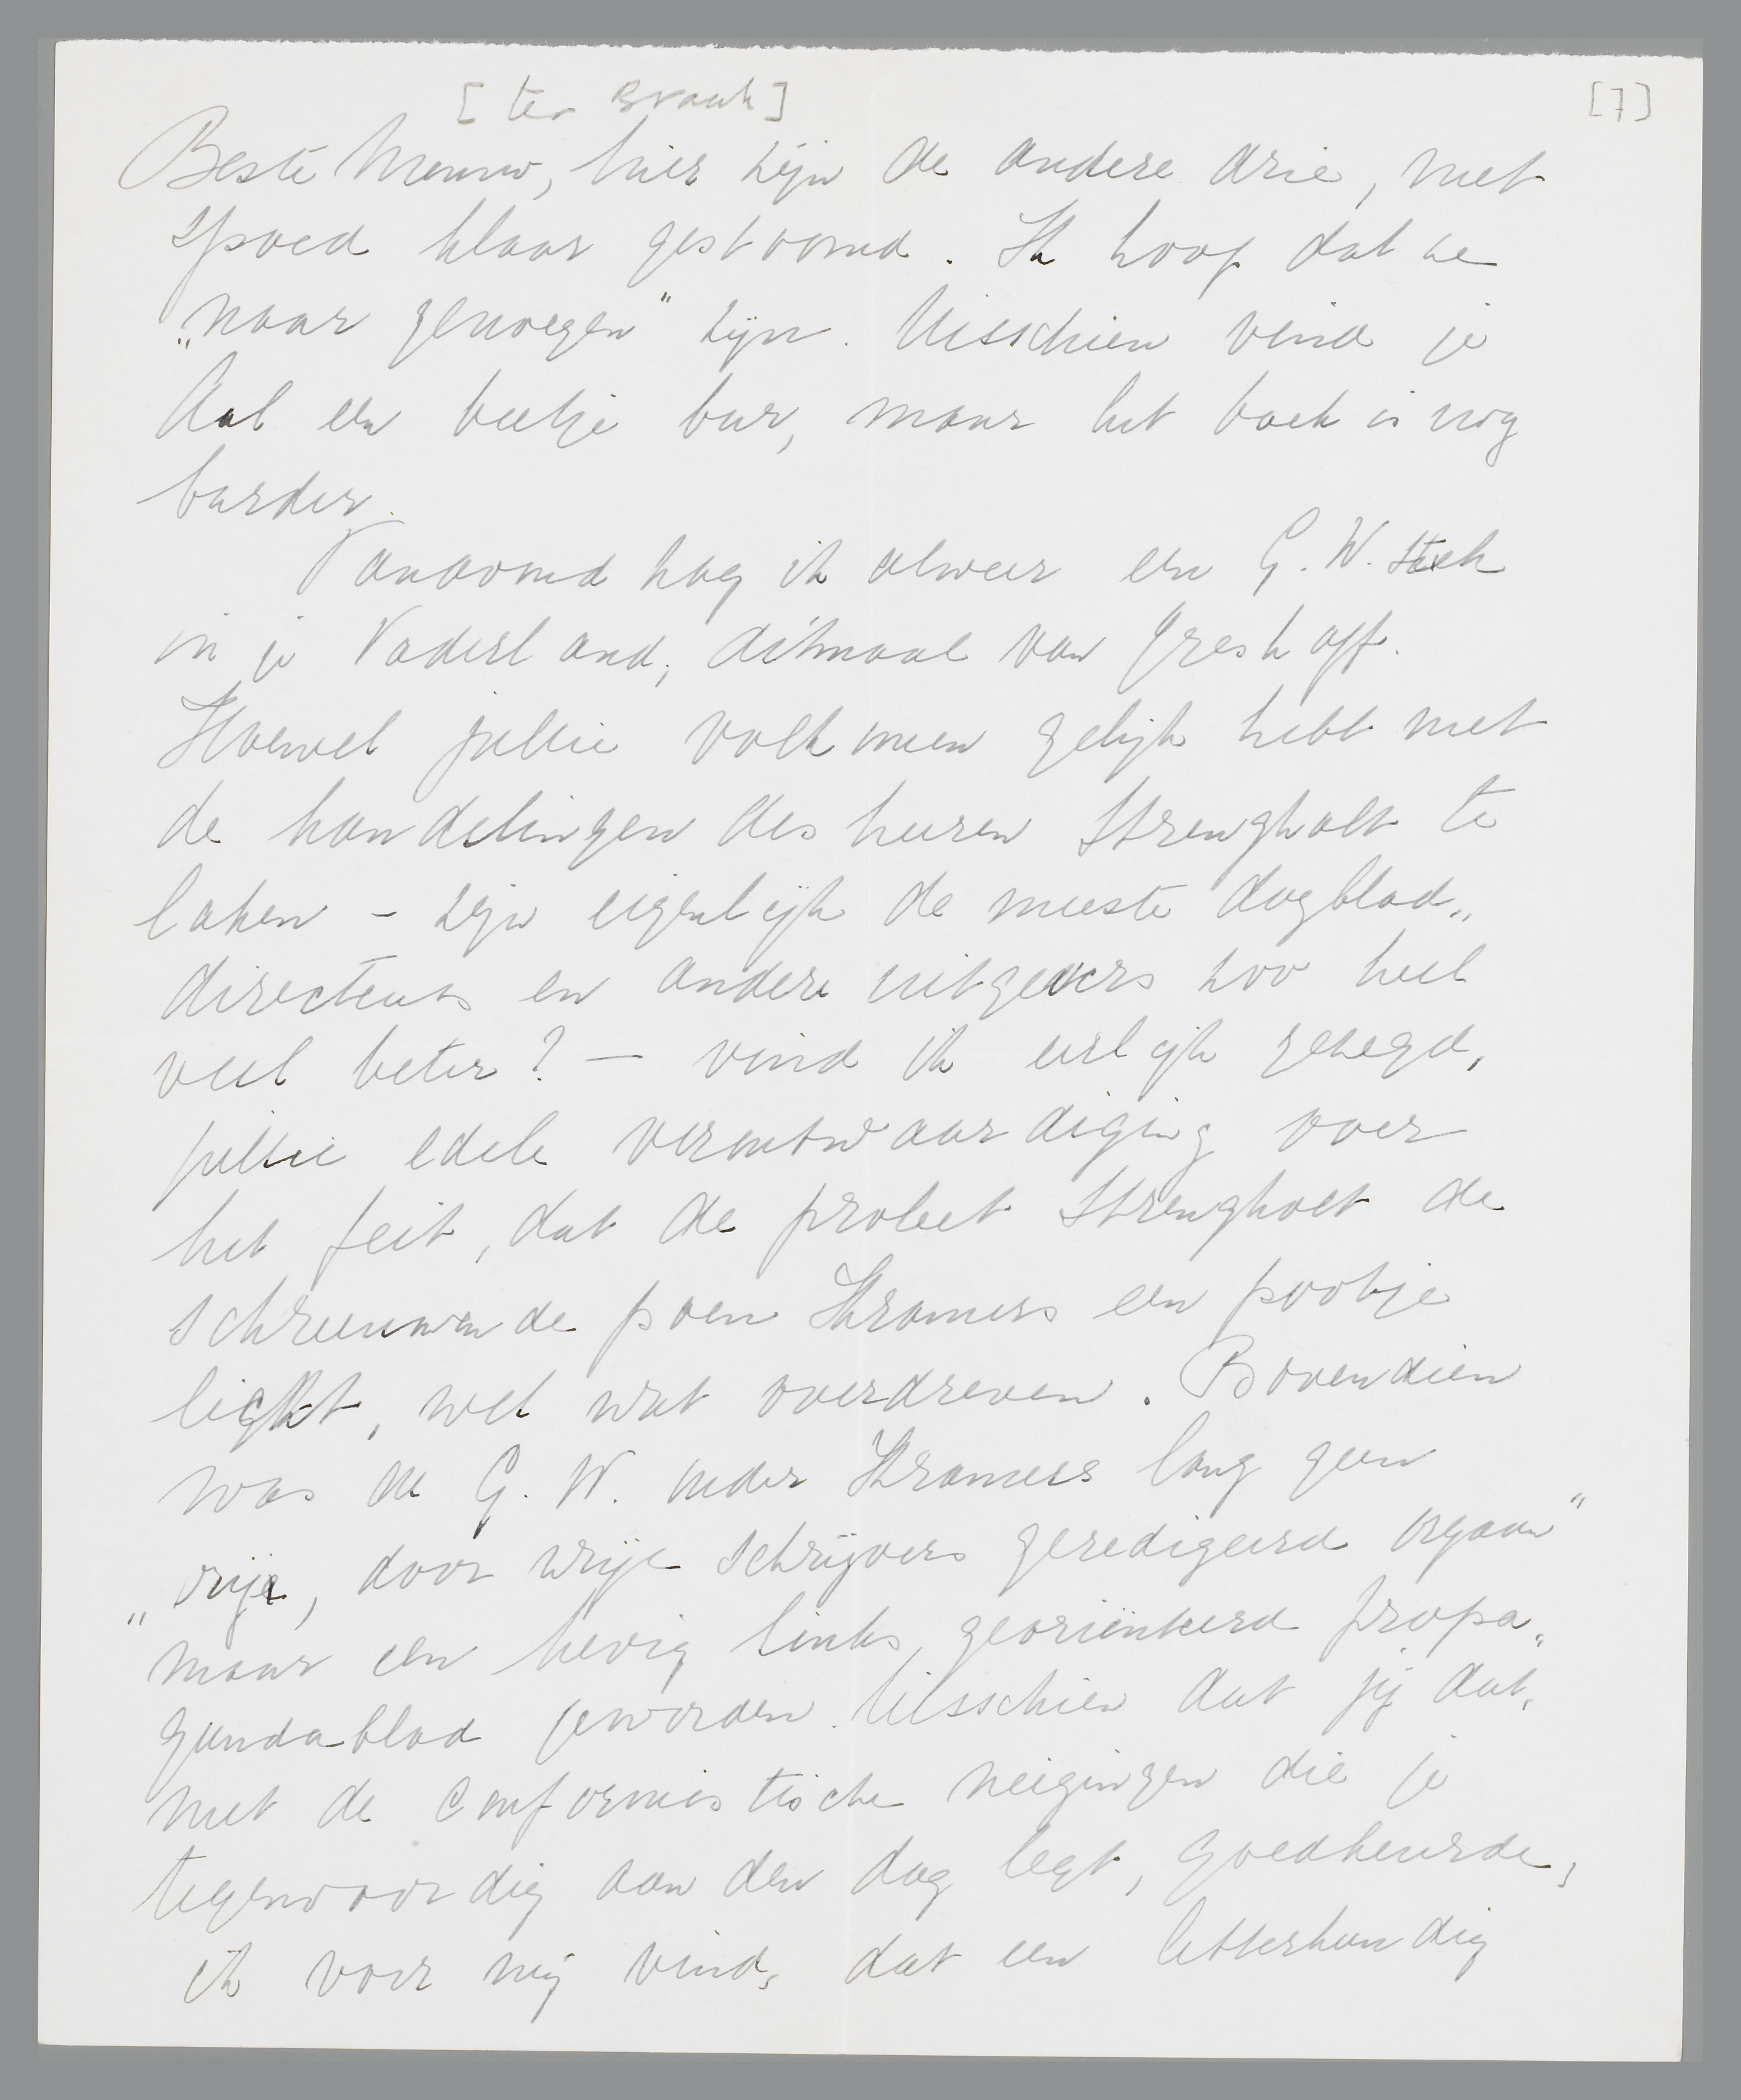 [ter Braak]
[7]
Beste Menno, hier zijn de andere drie, met
spoed klaar gestoomd. Ik hoop dat ze
„naar genoegen" zijn. Misschien vind je
dat een beetje bar, maar het boek is nog
barder.
Vanavond zag ik alweer een G.W. stuk
in je Vaderland, ditmaal van Greshoff.
Hoewel jullie volkomen gelijk hebt met
de handelingen des heeren Strengholt te
laken – zijn eigenlijk de meeste dagblad„
directeurs en andere uitgevers zoo heel
veel beter? — vind ik eerlijk gezegd,
jullie edele verontwaardiging over
het feit, dat de proleet Strengholt de
schreeuwende poen Kramers een pootje
licht, wel wat overdreven. Bovendien
was de G.W. onder Kramers lang geen
„vrije, door vrije schrijvers geredigeerd orgaan"
maar een hevig links georiënteerd propa„
gandablad geworden. Misschien dat jij dat,
met de conformistische neigingen die je
tegenwoordig aan den dag legt, goedkeurde,
ik voor mij vind, dat een letterkundig